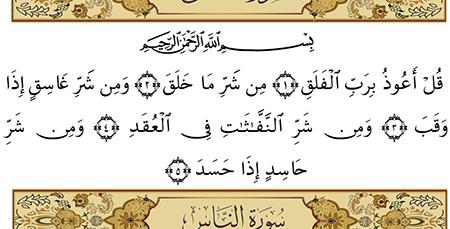 بِسْمِ ٱللَّهِ ٱلرَّحْمَٰنِ ٱلرَّحِيمِ
قُلْ أَعُوذُ بِرَبِّ ٱلْفَلَقِ ﴿١﴾ مِن شَرِّ مَا خَلَقَ ﴿٢﴾ وَمِن شَرِّ غَاسِقٍ إِذَا
وَقَبَ ﴿٣﴾ وَمِن شَرِّ ٱلنَّفَّٰثَٰتِ فِى ٱلْعُقَدِ ﴿٤﴾ وَمِن شَرِّ
حَاسِدٍ إِذَا حَسَدَ ﴿٥﴾
سُورَةُ النَّاسِ